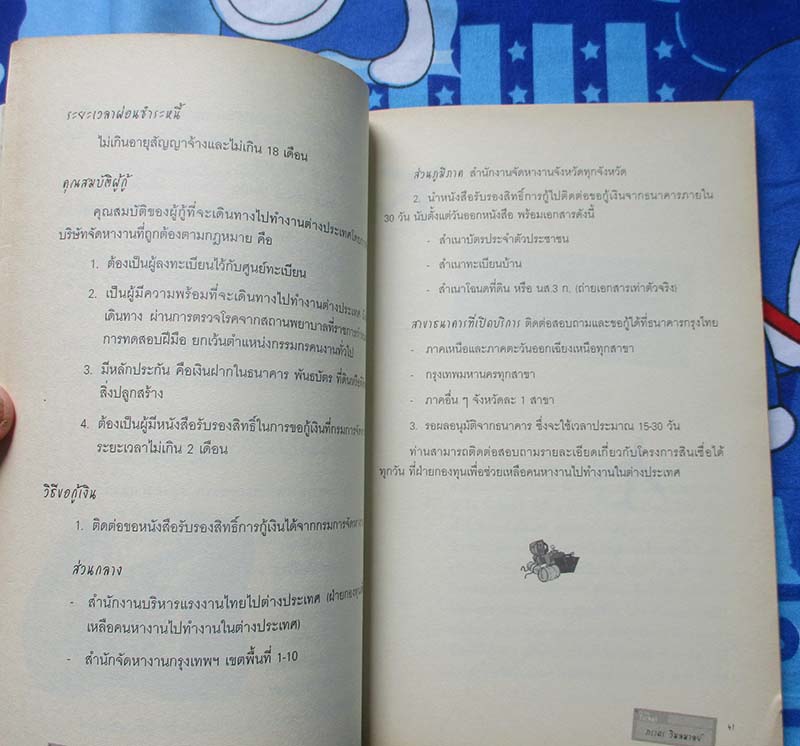 ระยะเวลาผ่อนชำระหนี้
ไม่เกินอายุสัญญาจ้างและไม่เกิน 18 เดือน
คุณสมบัติผู้กู้
คุณสมบัติของผู้กู้ที่จะเดินทางไปทำงานต่างประเทศ
บริษัทจัดหางานที่ถูกต้องตามกฎหมาย คือ
1. ต้องเป็นผู้ลงทะเบียนไว้กับศูนย์ทะเบียน
2. เป็นผู้มีความพร้อมที่จะเดินทางไปทำงานต่างประเทศ
เดินทาง ผ่านการตรวจโรคจากสถานพยาบาลที่ราชการ
การทดสอบฝีมือ ยกเว้นตำแหน่งกรรมกรคนงานทั่วไป
3. มีหลักประกัน คือเงินฝากในธนาคาร พันธบัตร
สิ่งปลูกสร้าง
4. ต้องเป็นผู้มีหนังสือรับรองสิทธิ์ในการขอกู้เงินที่กรมการจัด
ระยะเวลาไม่เกิน 2 เดือน
วิธีขอกู้เงิน
1. ติดต่อขอหนังสือรับรองสิทธิ์การกู้เงินได้จากกรมการจัด
ส่วนกลาง
- สำนักงานบริหารแรงงานไทยไปต่างประเทศ (ฝ่ายกองทุน
เหลือคนหางานไปทำงานในต่างประเทศ)
- สำนักจัดหางานกรุงเทพฯ เขตพื้นที่ 1-10
ส่วนภูมิภาค สำนักงานจัดหางานจังหวัดทุกจังหวัด
2. นำหนังสือรับรองสิทธิ์การกู้ไปติดต่อขอกู้เงินจากธนาคารภายใน
30 วัน นับตั้งแต่วันออกหนังสือ พร้อมเอกสารดังนี้
- สำเนาบัตรประจำตัวประชาชน
- สำเนาทะเบียนบ้าน
- สำเนาโฉนดที่ดิน หรือ นส.3 ก. (ถ่ายเอกสารเท่าตัวจริง)
สาขาธนาคารที่เปิดบริการ ติดต่อสอบถามและขอกู้ได้ที่ธนาคารกรุงไทย
- ภาคเหนือและภาคตะวันออกเฉียงเหนือทุกสาขา
- กรุงเทพมหานครทุกสาขา
- ภาคอื่น ๆ จังหวัดละ 1 สาขา
3. รอผลอนุมัติจากธนาคาร ซึ่งจะใช้เวลาประมาณ 15-30 วัน
ท่านสามารถติดต่อสอบถามรายละเอียดเกี่ยวกับโครงการสินเชื่อได้
ทุกวัน ที่ฝ่ายกองทุนเพื่อช่วยเหลือคนหางานไปทำงานในต่างประเทศ
41